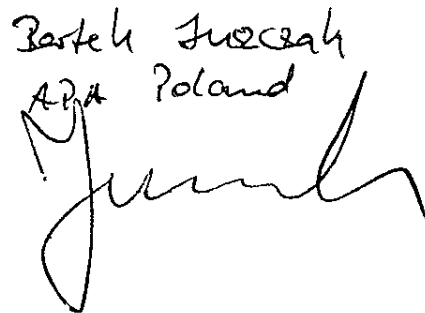 Bartek Juszczak
APA Poland